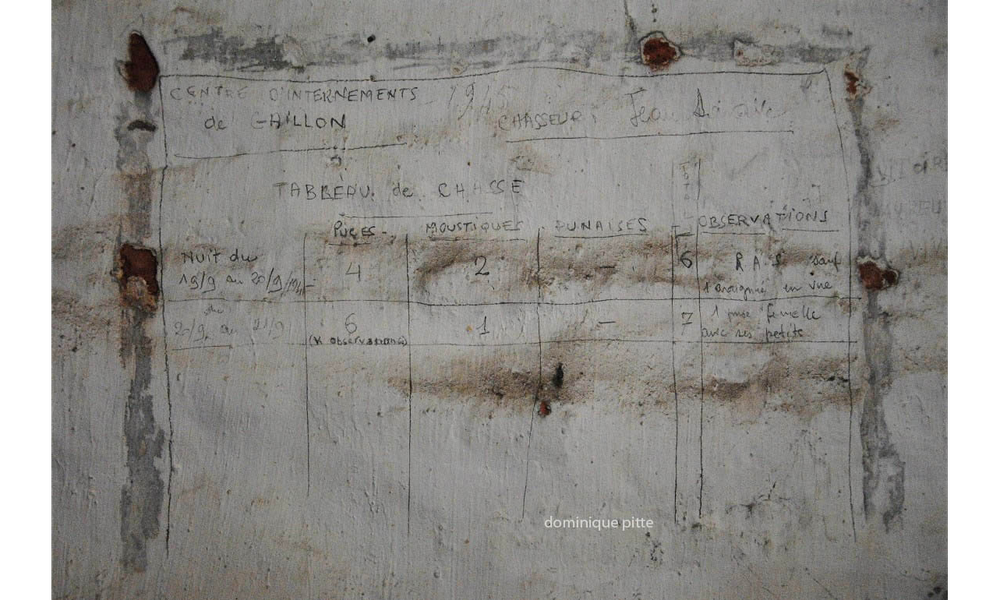 CENTRE D'INTERNEMENTS
de GAILLON
CHASSEUR: Jean
TABLEAU de CHASSE
PUCES MOUSTIQUES PUNAISES TOTAL OBSERVATIONS
Nuit du
19/9 au 20/9 4 2 — 6 R A S sauf
1 araignée en vue
de
20/9 au 21/9 6 1 — 7 1 puce femelle
(v. observations) avec ses petits
dominique pitte